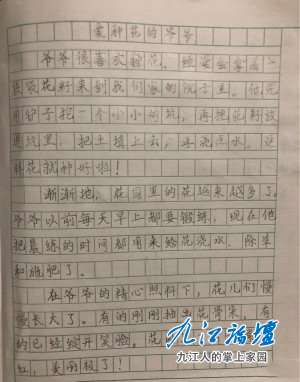 爱种花的爷爷
爷爷很喜欢种花。
花籽来到我们家的院子里。他先
用铲子挖一个小小的坑，再把花籽放
进坑里，把土填上去，再浇点水。这
样花就种好啦！
渐渐地，花园里的花越来越多了。
爷爷以前每天早上都要锻炼，现在他
把晨练的时间都用来给花浇水、除草
和施肥了。
在爷爷的精心照料下，花儿们慢
慢长大了。有的刚刚抽出花骨朵，有
的已经绽开笑脸。花
红，美丽极了！
九江论坛
九江人的掌上家园